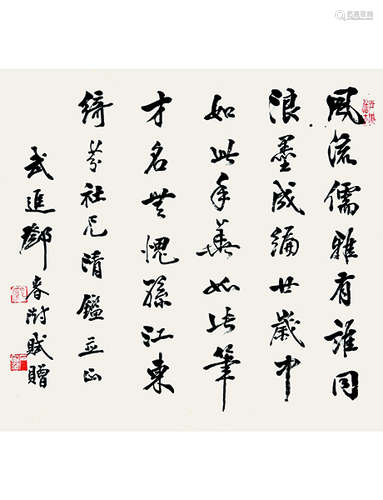 風流儒雅有誰同
浪墨成編廿歲中
如此年華如此筆
才名無愧孫江東
綺芬社兄清鑑並正
武進鄧春澍賦贈